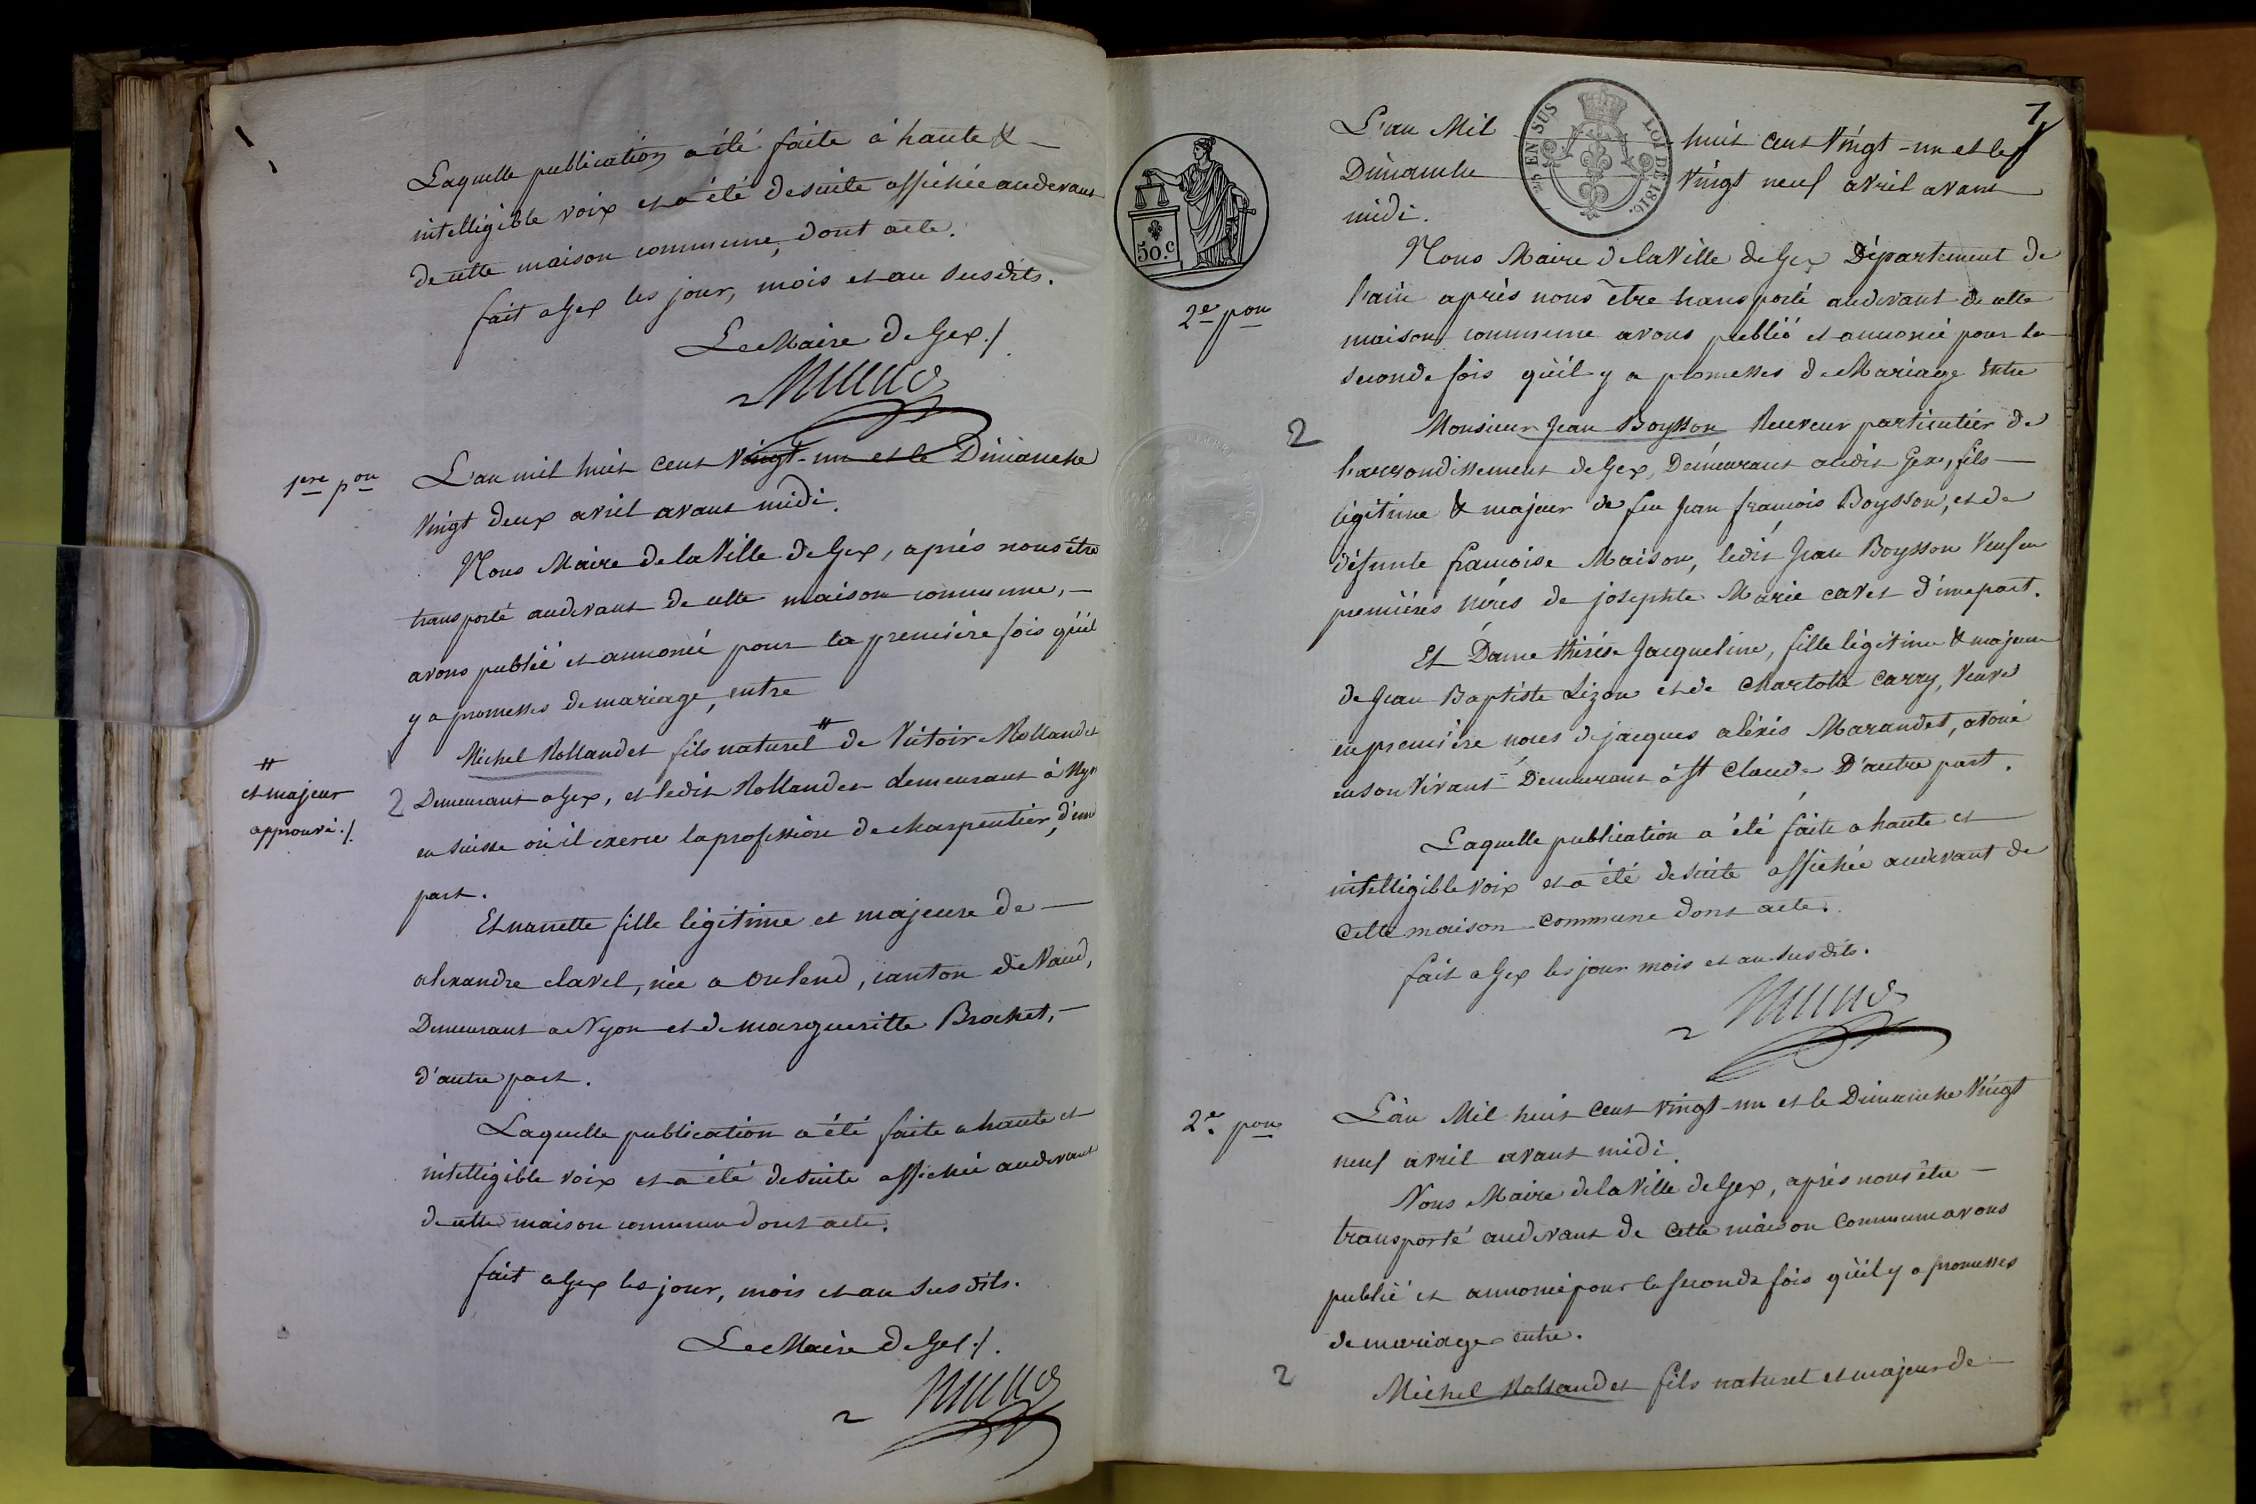 Laquelle publication a été faite à haute &
intelligible voix et a été desuite affichée audevant
de cette maison commune, dont acte.
fait a Gex les jour, mois et an susdits.
Le Maire de Gex./
1ere pon
L'an mil huit cent vingt-un et le Dimanche
vingt deux avril avant midi.
Nous Maire de la Ville de Gex, après nous être
transporté audevant de cette maison commune,
avons publié et annoncé pour la première fois qu'il
y a promesses de mariage, entre
Michel Rollandet fils naturel # de Victoir Rollandet
# et majeur
approuvé./.
2
Demeurant a Gex, et ledit Rollandet demeurant à Nyon
en Suisse où il exerce la profession de charpentier, d'une
part.
Et nanette fille légitime et majeure de
alexandre clavel, née a oulend, canton de Vaud,
Demeurant a Nyon et de margueritte Brochet,
d'autre part.
Laquelle publication a été faite a haute et
intelligible voix et a été desuite affichée audevant
de cette maison commune dont acte.
fait a Gex les jour, mois et an susdits.
Le Maire de Gex./.
7
L'an Mil huit cent vingt-un et le
Dimanche vingt neuf avril avant
midi.
EN SUS
LOI DE 1816.
50.c
2e pon
Nous Maire de la Ville de Gex Département de
l'ain après nous être transporté audevant de cette
maison commune avons publié et annoncé pour la
seconde fois qu'il y a promesses de Mariage entre
2
Monsieur Jean Boysson Receveur particulier de
l'arrondissement de Gex, Demeurant audit Gex, fils
légitime & majeur de feu Jean françois Boysson, et de
défunte françoise Maison, ledit Jean Boysson Veuf en
premières nôces de josephte Marie cavet d'une part.
Et Dame thérèse Jacqueline, fille légitime & majeure
de Jean Baptiste Lizon et de Charlotte Carry, Veuve
en première noces de jacques aléxis Marandet, avoué
en son vivant Demeurant à St Claude D'autre part.
Laquelle publication a été faite a haute et
intelligible voix et a été desuite affichée audevant de
Cette maison commune dont acte.
fait a Gex les jour mois et an susdits.
2e pon
L'an Mil huit cent vingt-un et le Dimanche Vingt
neuf avril avant midi.
Nous Maire de la Ville de Gex, après nous être
transporté audevant de Cette maison Commune avons
publié et annoncé pour la seconde fois qu'il y a promesses
de mariage entre.
2
Michel Rollandet fils naturel et majeur de